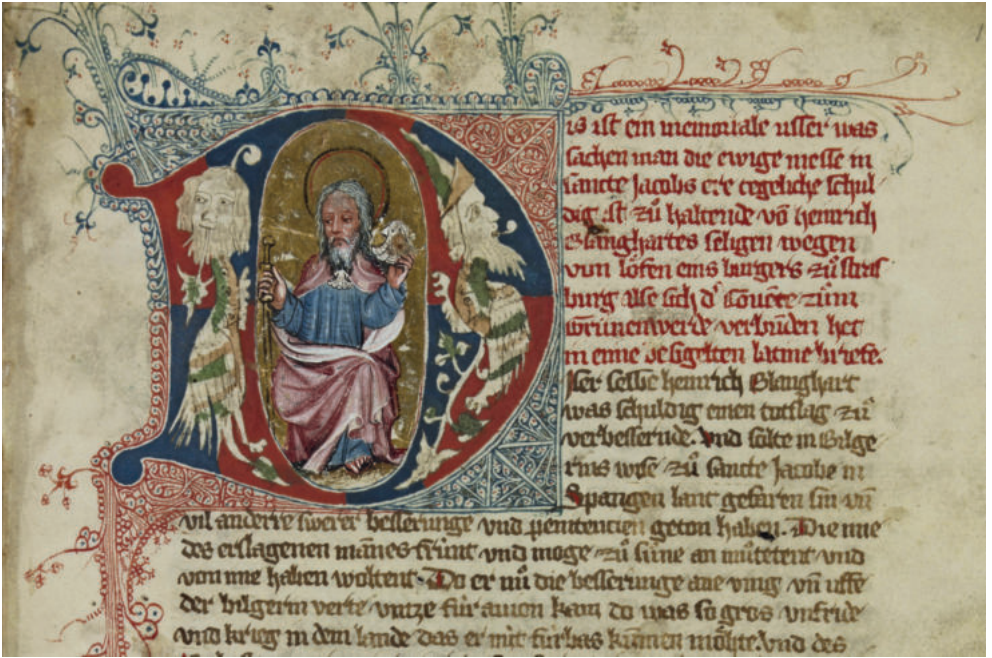 Dis ist ein memoriale usser was
sachen man die ewige messe in
sancte Jacobs ere tegeliche schul
dig ist zů haltende võ heinrich
Blanghartes seligen wegen
vun löfen eins burgers zů stras
burg Alse sich d' Cõuẽte zům
Grünenwerde verbũden het
in eime besigelten latine briefe.
Dser selbe heinrich Blanghart
was schuldig einen totslag zů
verbesserende. Vnd solte in Bilge
rins wise zů sancte Jacobe in
Spangen lant gefaren sin vñ
vil andere swerer besserunge vnd penitencien geton haben. Die ime
des erslagenen mãnes frúnt vnd moge zů sůne an můtetent vnd
von ime haben woltent. Do er nů die besserunge ane ving vñ uffe
der bilgerin verte vntze fúr auion kam do was so gros vnfride
vnd krieg in dem lande das er nút fúrbas kummen möhte. vnd des